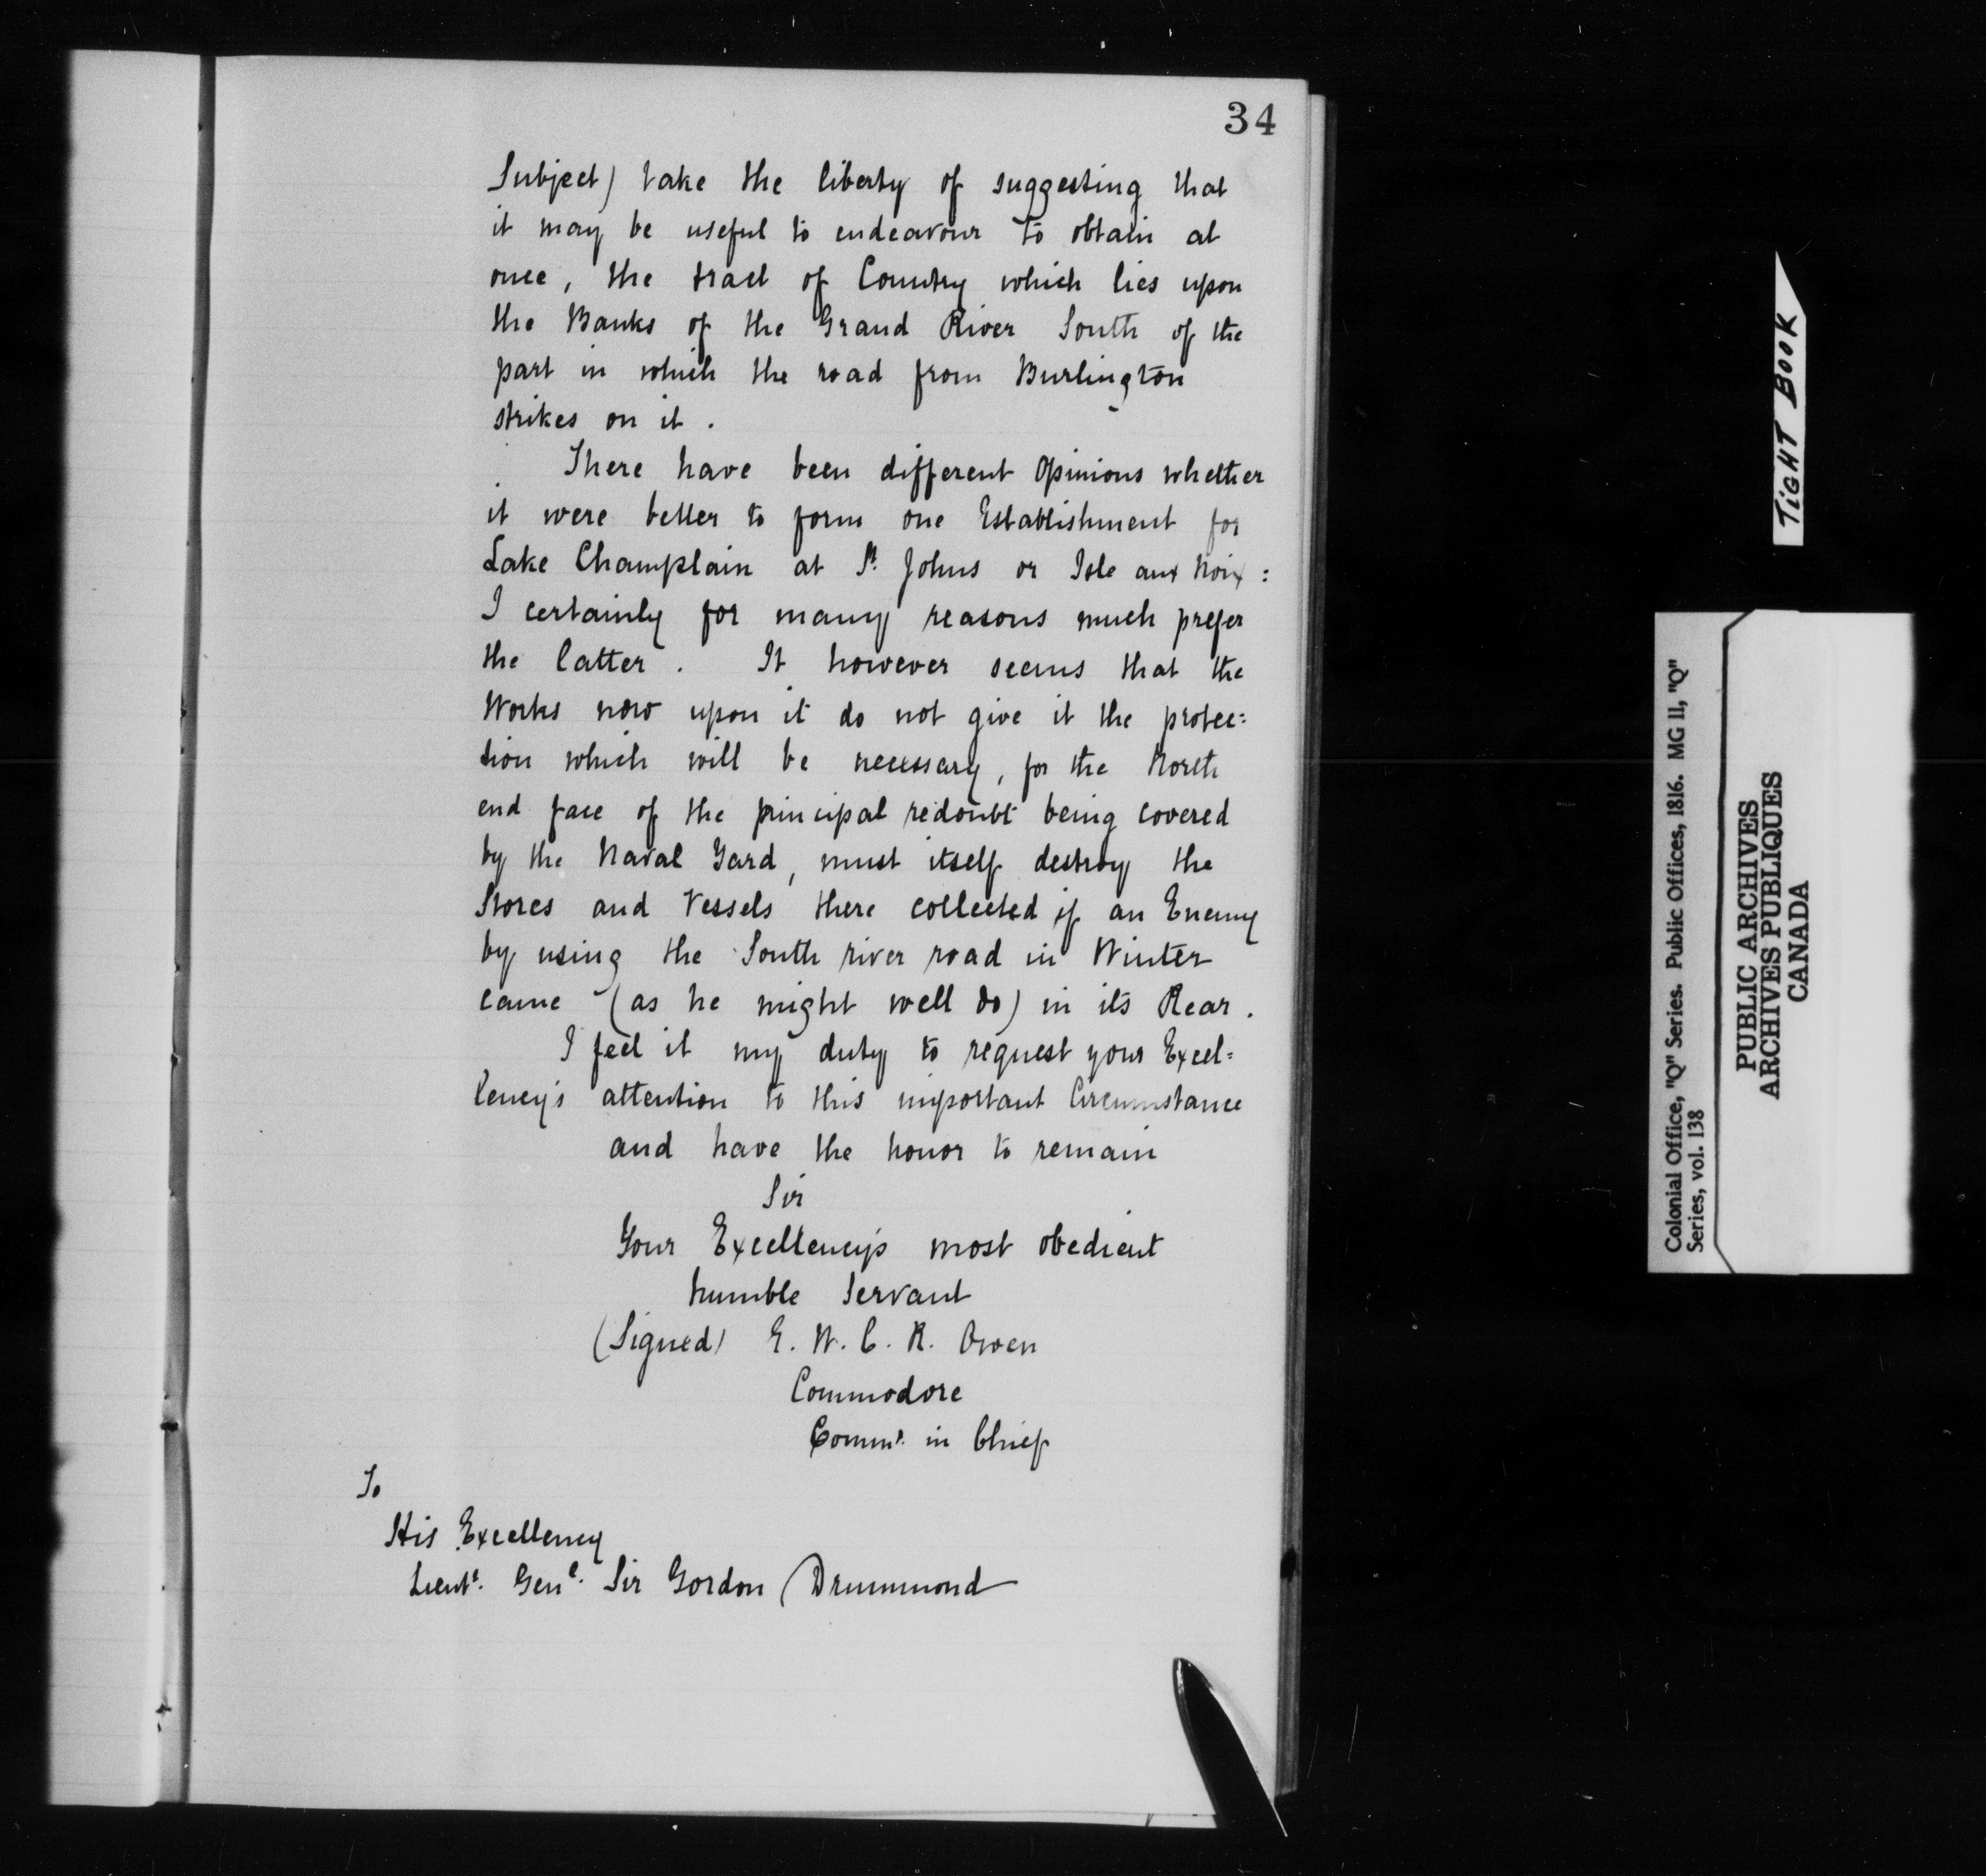 34
Subject) take the liberty of suggesting that
it may be useful to endeavour to obtain at
once, the tract of Country which lies upon
the Banks of the Grand River South of the
part in which the road from Burlington
strikes on it.
There have been different Opinions whether
it were better to form one Establishment for
Lake Champlain at St. Johns or Isle aux Noix:
I certainly for many reasons much prefer
the latter. It however seems that the
Works now upon it do not give it the protec=
tion which will be necessary, for the North
end face of the principal redoubt being covered
by the Naval Yard, must itself destroy the
Stores and Vessels there collected if an Enemy
by using the South river road in Winter
came (as he might well do) in its Rear.
I feel it my duty to request your Excel=
lency's attention to this important Circumstance
and have the honor to remain
Sir
Your Excellency's most obedient
humble Servant
(Signed) E. W. C. R. Owen
Commodore
Commr. in Chief
To
His Excellency
Lieutt. Genl. Sir Gordon Drummond
TIGHT BOOK
Colonial Office, "Q" Series. Public Offices, 1816. MG 11, "Q"
Series, vol. 138
PUBLIC ARCHIVES
ARCHIVES PUBLIQUES
CANADA